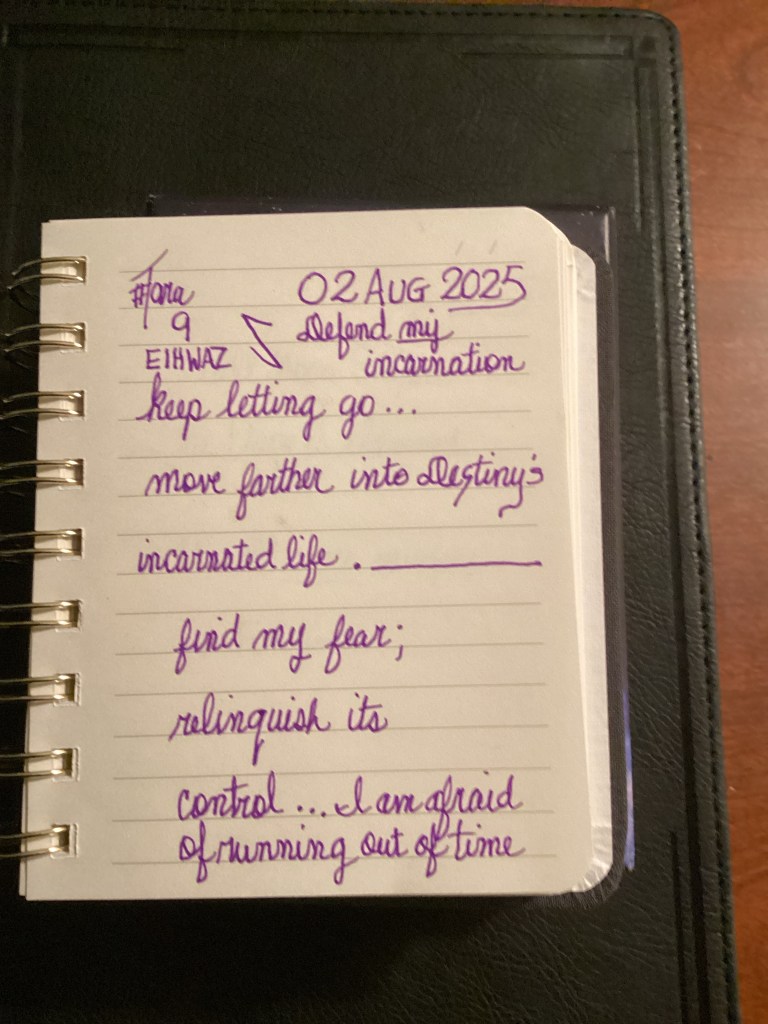 #Tara 02 AUG 2025
9 Defend my
EIHWAZ incarnation
keep letting go...
move farther into Destiny's
incarnated life.
find my fear;
relinquish its
control... I am afraid
of running out of time